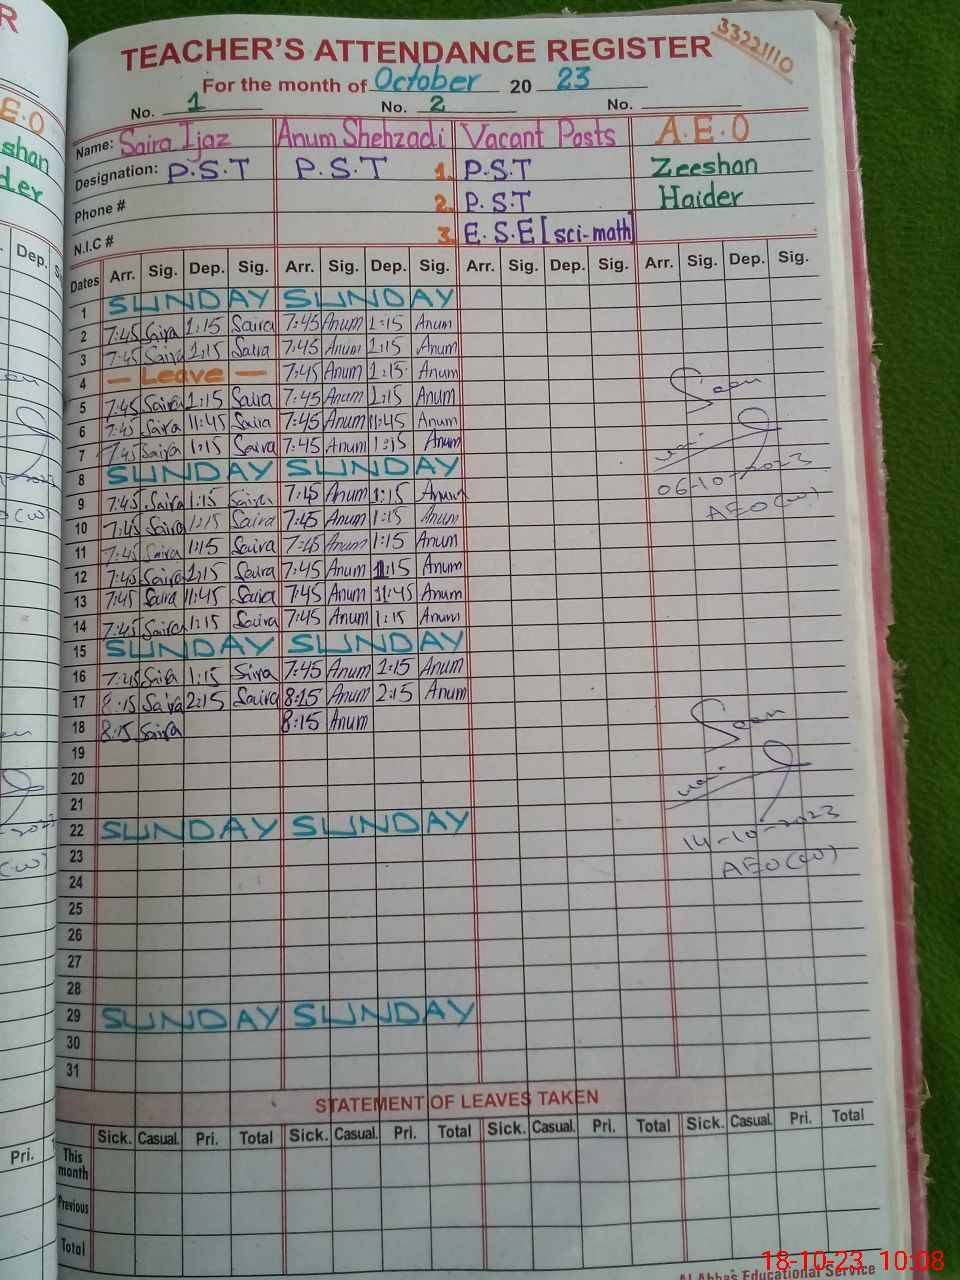 R
E.O
shan
der
Dep.
Pri.
33221110
TEACHER'S ATTENDANCE REGISTER
For the month of October 20 23
No. 1 No. 2 No.
Name: Saira Ijaz Anum Shehzadi Vacant Posts A.E.O
Designation: P.S.T P.S.T 1. P.S.T Zeeshan
Phone # 2. P.S.T Haider
N.I.C # 3. E.S.E [sci-math]
Dates Arr. Sig. Dep. Sig. Arr. Sig. Dep. Sig. Arr. Sig. Dep. Sig. Arr. Sig. Dep. Sig.
1 SUNDAY SUNDAY
2 7:45 Saira 1:15 Saira 7:45 Anum 1:15 Anum
3 7:45 Saira 1:15 Saira 7:45 Anum 1:15 Anum
4 — Leave — 7:45 Anum 1:15 Anum
5 7:45 Saira 1:15 Saira 7:45 Anum 1:15 Anum
6 7:45 Saira 11:45 Saira 7:45 Anum 11:45 Anum
7 7:45 Saira 1:15 Saira 7:45 Anum 1:15 Anum
8 SUNDAY SUNDAY
9 7:45 Saira 1:15 Saira 7:45 Anum 1:15 Anum
10 7:45 Saira 1:15 Saira 7:45 Anum 1:15 Anum
11 7:45 Saira 1:15 Saira 7:45 Anum 1:15 Anum
12 7:45 Saira 1:15 Saira 7:45 Anum 1:15 Anum
13 7:45 Saira 11:45 Saira 7:45 Anum 11:45 Anum
14 7:45 Saira 1:15 Saira 7:45 Anum 1:15 Anum
15 SUNDAY SUNDAY
16 7:45 Saira 1:15 Saira 7:45 Anum 1:15 Anum
17 8:15 Saira 2:15 Saira 8:15 Anum 2:15 Anum
18 8:15 Saira 8:15 Anum
19
20
21
22 SUNDAY SUNDAY
23
24
25
26
27
28
29 SUNDAY SUNDAY
30
31
Seen
06-10-2023
AEO(W)
Seen
14-10-2023
AEO(W)
STATEMENT OF LEAVES TAKEN
Sick. Casual. Pri. Total Sick. Casual. Pri. Total Sick. Casual. Pri. Total Sick. Casual. Pri. Total
This month
Previous
Total
Al Abbas Educational Service
18-10-23 10:08